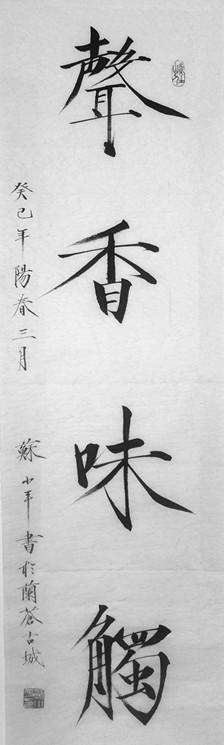 聲香味觸
癸巳年陽春三月
蘇小年書於蘭蒼古城